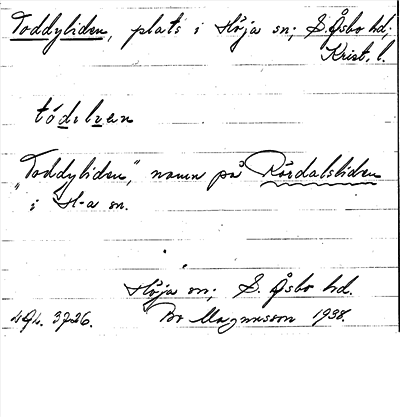 Toddyliden, plats i Höja sn; S. Åsbo hd,
Krist. l.
tódilien
"Toddyliden," namn på Rördalsliden
i H-a sn.
Höja sn; S. Åsbo hd.
Bo Magnusson 1938.